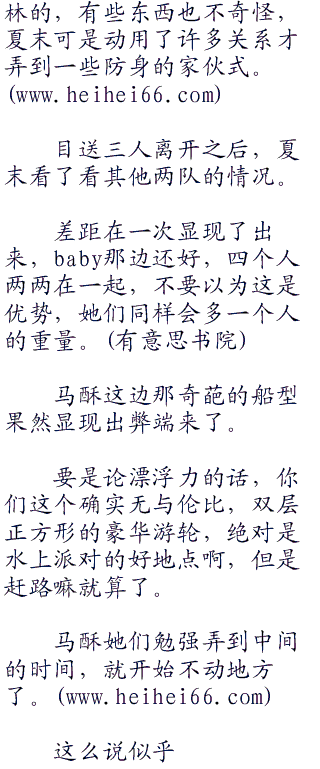 林的，有些东西也不奇怪，
夏末可是动用了许多关系才
弄到一些防身的家伙式。
(www.heihei66.com)
目送三人离开之后，夏
末看了看其他两队的情况。
差距在一次显现了出
来，baby那边还好，四个人
两两在一起，不要以为这是
优势，她们同样会多一个人
的重量。(有意思书院)
马酥这边那奇葩的船型
果然显现出弊端来了。
要是论漂浮力的话，你
们这个确实无与伦比，双层
正方形的豪华游轮，绝对是
水上派对的好地点啊，但是
赶路嘛就算了。
马酥她们勉强弄到中间
的时间，就开始不动地方
了。(www.heihei66.com)
这么说似乎